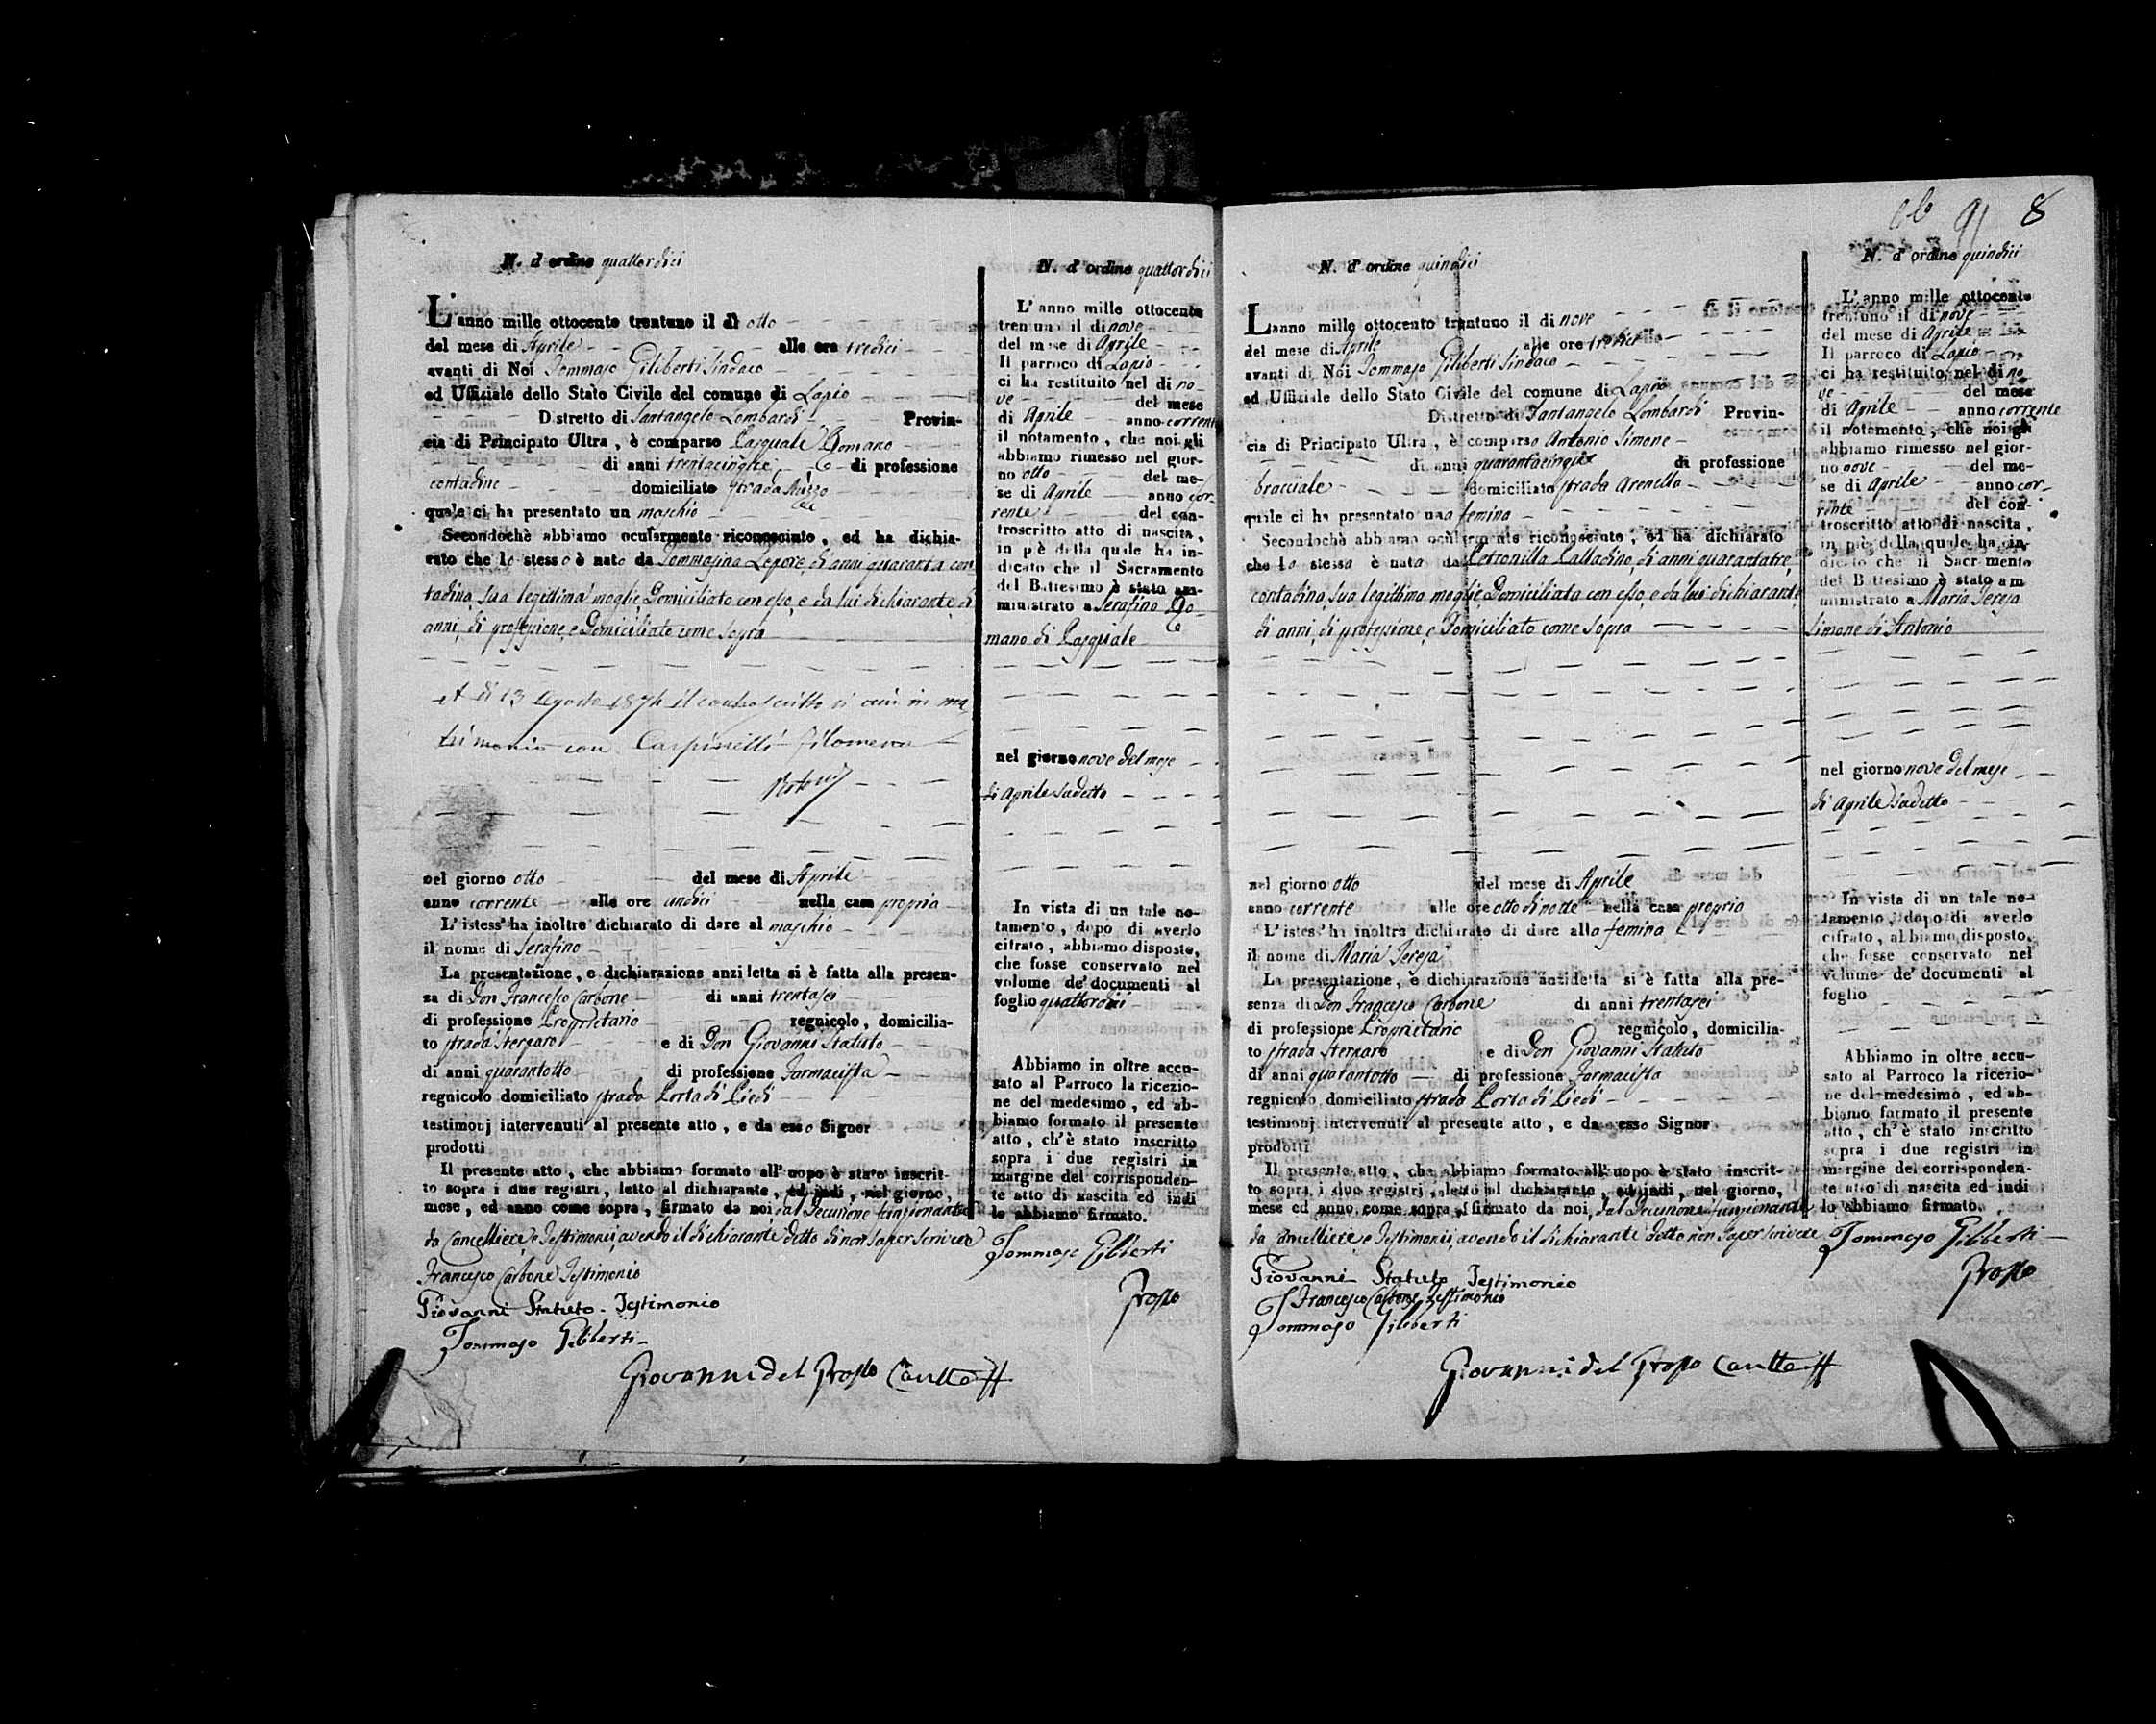 N. d' ordine quattordici
L'anno mille ottocento trentuno il dì otto
del mese di Aprile alle ore tredici
avanti di Noi Tommaso Filiberti Sindaco
ed Uffiziale dello Stato Civile del comune di Lapio
Distretto di Santangelo Lombardi Provin-
cia di Principato Ultra, è comparso Pasquale Romano
di anni trentacinque di professione
contadino domiciliato strada
quale ci ha presentato un maschio
Secondochè abbiamo ocularmente riconosciuto, ed ha dichia-
rato che lo stesso è nato da Tommasina Lepore, di anni quaranta con
tadina, sua legittima moglie, Domiciliato con esso, e da lui dichiarante di
anni, di professione, e Domiciliato come sopra
A dì 13 Agosto 1874 il controscritto si unì in ma
trimonio con Carpinelli Filomena
nel giorno otto del mese di Aprile
anno corrente alle ore undici nella casa propria
L'istess' ha inoltre dichiarato di dare al maschio
il nome di Serafino
La presentazione, e dichiarazione anzidetta si è fatta alla presen-
za di Don Francesco Carbone di anni trentasei
di professione Proprietario regnicolo, domicilia-
to strada Sterparo e di Don Giovanni Statuto
di anni quarantotto di professione Farmacista
regnicolo domiciliato strada Porta di Piedi
testimonj intervenuti al presente atto, e da esso Signor
prodotti
Il presente atto, che abbiamo formato all' uopo è stato inscrit-
to sopra i due registri, letto al dichiarante, ed indi, nel giorno,
mese, ed anno come sopra, firmato da noi, dal Decurione funzionante
da Cancelliere, e Testimonii, avendo il dichiarante detto di non saper scrivere
Francesco Carbone Testimonio
Giovanni Statuto Testimonio
Tommaso Filiberti
Giovanni del Grosso
N. d' ordine quattordici
L' anno mille ottocento
trentuno il di nove
del mese di Aprile
Il parroco di Lapio
ci ha restituito nel di no-
ve del mese
di Aprile anno corrente
il notamento, che noi gli
abbiamo rimesso nel gior-
no otto del me-
se di Aprile anno cor-
rente del con-
troscritto atto di nascita,
in piè della quale ha in-
dicato che il Sacramento
del Battesimo è stato am-
ministrato a Serafino Ro-
mano di Pasquale
nel giorno nove del mese
di Aprile sudetto
In vista di un tale no-
tamento, dopo di averlo
cifrato, abbiamo disposto,
che fosse conservato nel
volume de' documenti al
foglio quattordici
Abbiamo in oltre accu-
sato al Parroco la ricezio-
ne del medesimo, ed ab-
biamo formato il presente
atto, ch'è stato inscritto
sopra i due registri in
margine del corrisponden-
te atto di nascita ed indi
lo abbiamo firmato.
Tommaso Filiberti
Grosso
8
N. d' ordine quindici
L'anno mille ottocento trentuno il di nove
del mese di Aprile alle ore tredici
avanti di Noi Tommaso Filiberti Sindaco
ed Uffiziale dello Stato Civile del comune di Lapio
Distretto di Santangelo Lombardi Provin-
cia di Principato Ultra, è comparso Antonio Simone
di anni quarantacinque di professione
bracciale domiciliato strada Arenella
quale ci ha presentato una femina
Secondochè abbiamo ocularmente riconosciuto, ed ha dichiarato
che la stessa è nata da Petronilla Calladino, di anni quarantatre,
contadina, sua legittima moglie, Domiciliata con esso, e da lui dichiarante
di anni, di professione, e Domiciliato come sopra
nel giorno otto del mese di Aprile
anno corrente alle ore otto di notte nella casa propria
L'istess' ha inoltre dichiarato di dare alla femina
il nome di Maria Teresa
La presentazione, e dichiarazione anzidetta si è fatta alla pre-
senza di Don Francesco Carbone di anni trentasei
di professione Proprietario regnicolo, domicilia-
to strada Sterparo e di Don Giovanni Statuto
di anni quarantotto di professione Farmacista
regnicolo domiciliato strada Porta di Piedi
testimonj intervenuti al presente atto, e da esso Signor
prodotti
Il presente atto, che abbiamo formato all' uopo è stato inscrit-
to sopra i due registri, letto al dichiarante, ed indi, nel giorno,
mese ed anno come sopra, firmato da noi, dal Decurione funzionante
da Cancelliere, e Testimonii, avendo il dichiarante detto non saper scrivere
Giovanni Statuto Testimonio
Francesco Carbone Testimonio
Tommaso Filiberti
Giovanni del Grosso
N. d' ordine quindici
L' anno mille ottocento
trentuno il di nove
del mese di Aprile
Il parroco di Lapio
ci ha restituito nel di no
ve del mese
di Aprile anno corrente
il notamento, che noi gli
abbiamo rimesso nel gior-
no nove del me-
se di Aprile anno cor-
rente del con-
troscritto atto di nascita,
in piè della quale ha in-
dicato che il Sacramento
del Battesimo è stato am
ministrato a Maria Teresa
Simone di Antonio
nel giorno nove del mese
di Aprile sudetto
In vista di un tale no-
tamento, dopo di averlo
cifrato, abbiamo disposto,
che fosse conservato nel
volume de' documenti al
foglio
Abbiamo in oltre accu-
sato al Parroco la ricezio-
ne del medesimo, ed ab-
biamo formato il presente
atto, ch'è stato inscritto
sopra i due registri in
margine del corrisponden-
te atto di nascita ed indi
lo abbiamo firmato.
Tommaso Filiberti
Grosso